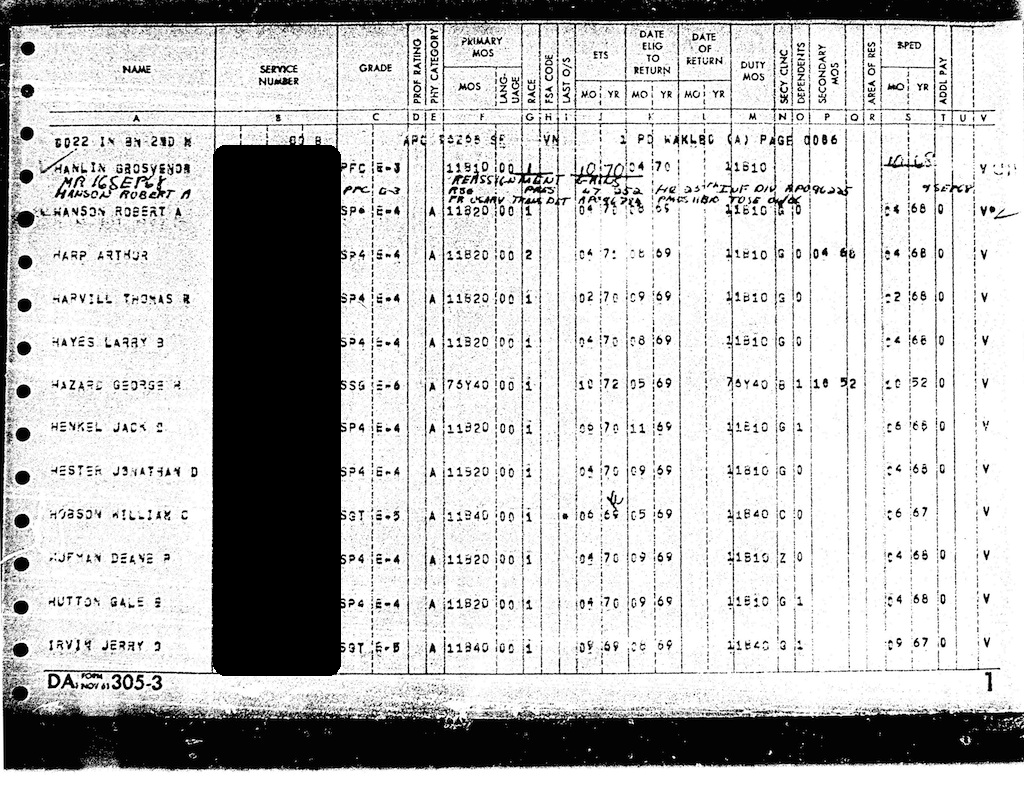 NAME SERVICE NUMBER GRADE PROF RATING PHY CATEGORY PRIMARY MOS MOS LANG-UAGE RACE FSA CODE LAST O/S ETS MO YR DATE ELIG TO RETURN MO YR DATE OF RETURN MO YR DUTY MOS SECY CLNC DEPENDENTS SECONDARY MOS AREA OF RES BPED MO YR ADDL PAY
A B C D E F G H I J K L M N O P Q R S T U V
0022 IN BN 2ND M 00 B APO SF VN 1 PD WAKLBG (A) PAGE 0086
HANLIN GROSVENOR PFC E-3 11B10 00 1 10 70 04 70 11B10 10 68 V
MR 16SEP68 REASSIGNMENT
HANSON ROBERT A PFC E-3 PRES 67 252 HQ 25th INF DIV APO 96225 9SEP68
HANSON ROBERT A SP4 E-4 A 11B20 00 1 04 70 08 69 11B10 G 0 04 68 0 V*
HARP ARTHUR SP4 E-4 A 11B20 00 2 04 71 08 69 11B10 G 0 04 68 04 68 0 V
HARVILL THOMAS R SP4 E-4 A 11B20 00 1 02 70 09 69 11B10 G 0 02 68 0 V
HAYES LARRY B SP4 E-4 A 11B20 00 1 04 70 08 69 11B10 G 0 04 68 0 V
HAZARD GEORGE H SSG E-6 A 76Y40 00 1 10 72 05 69 76Y40 B 1 10 52 10 52 0 V
HENKEL JACK SP4 E-4 A 11B20 00 1 70 11 69 11B10 G 1 06 68 0 V
HESTER JONATHAN D SP4 E-4 A 11B20 00 1 04 70 09 69 11B10 G 0 04 68 0 V
HOBSON WILLIAM C SGT E-5 A 11B40 00 1 * 06 69 05 69 11B40 C 0 06 67 V
HUFMAN DEANE SP4 E-4 A 11B20 00 1 04 70 09 69 11B10 Z 0 04 68 0 V
HUTTON GALE SP4 E-4 A 11B20 00 1 04 70 09 69 11B10 G 1 04 68 0 V
IRVIN JERRY SGT E-5 A 11B40 00 1 09 69 06 69 11B40 G 1 09 67 0 V
DA FORM NOV 61 305-3 1